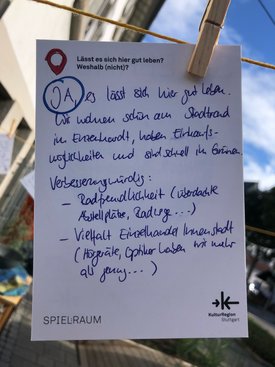 Lässt es sich hier gut leben?
Weshalb (nicht)?
JA, es lässt sich hier gut leben.
Wir wohnen schön am Stadtrand
in Enzenhardt, haben Einkaufs-
möglichkeiten und sind schnell im Grünen.
Verbesserungswürdig:
– Radfreundlichkeit (überdachte
Abstellplätze, Radwege...)
– Vielfalt Einzelhandel Innenstadt
(Hörgeräte, Optiker haben wir mehr
als genug...)
SPIEL:RAUM
KulturRegion
Stuttgart